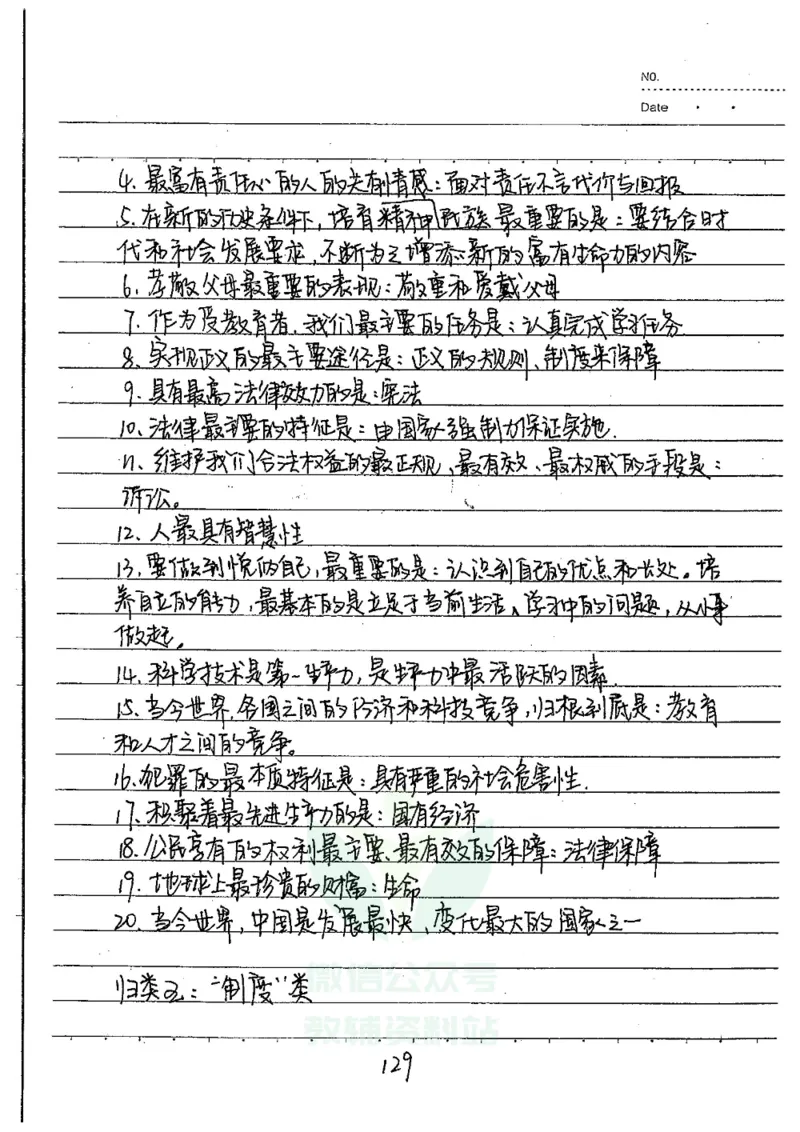 NO.
Date
4. 最富有责任心的人的共有情感：面对责任不言代价与回报
5. 在新的历史条件下，培育精神民族最重要的是：要结合时
代和社会发展要求，不断为之增添新的富有生命力的内容
6. 孝敬父母最重要的表现：敬重和爱戴父母
7. 作为受教育者，我们最主要的任务是：认真完成学习任务
8. 实现正义的最主要途径是：正义的规则、制度来保障
9. 具有最高法律效力的是：宪法
10. 法律最主要的特征是：由国家强制力保证实施.
11. 维护我们合法权益的最正规、最有效、最权威的手段是：
诉讼。
12. 人最具有智慧性
13. 要做到悦纳自己，最重要的是：认识到自己的优点和长处。培
养自立的能力，最基本的是立足于当前生活、学习中的问题，从小事
做起。
14. 科学技术是第一生产力，是生产力中最活跃的因素.
15. 当今世界，各国之间的经济和科技竞争，归根到底是：教育
和人才之间的竞争。
16. 犯罪的最本质特征是：具有严重的社会危害性.
17. 积聚着最先进生产力的是：国有经济
18. 公民享有的权利最主要、最有效的保障：法律保障
19. 地球上最珍贵的财富：生命
20. 当今世界，中国是发展最快、变化最大的国家之一
归类五：“制度”类
微信公众号
教辅资料站
129